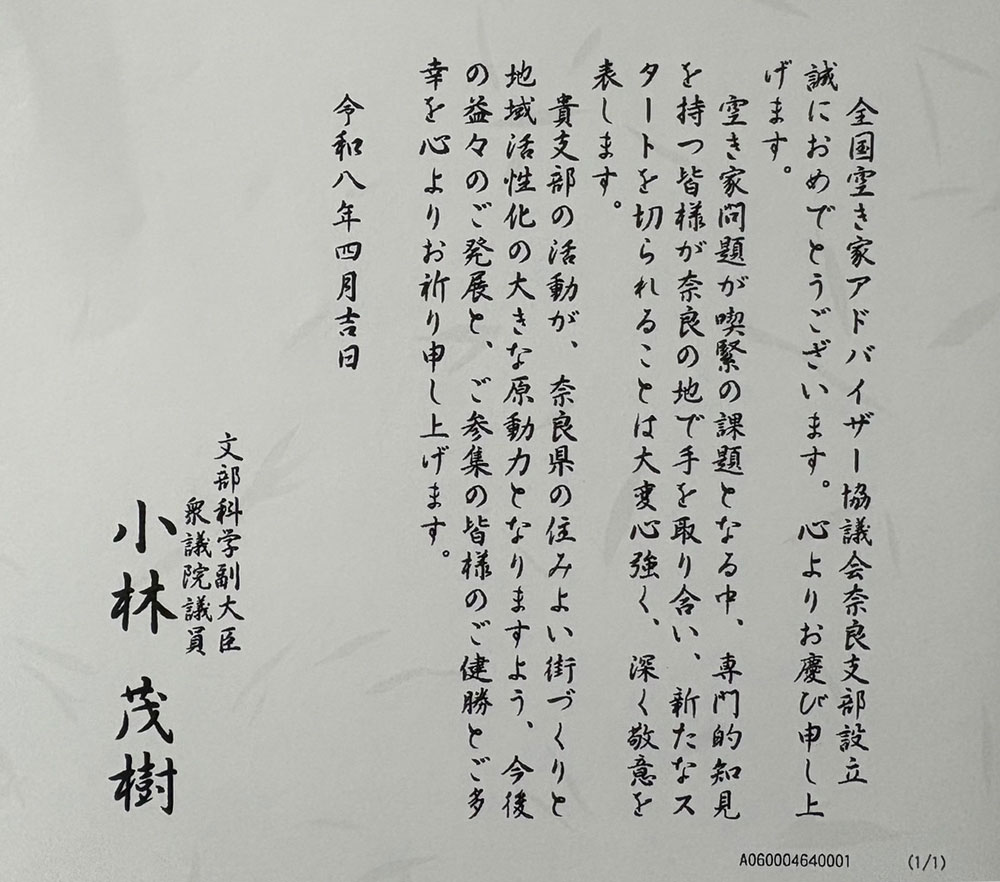 全国空き家アドバイザー協議会奈良支部設立
誠におめでとうございます。心よりお慶び申し上
げます。
空き家問題が喫緊の課題となる中、専門的知見
を持つ皆様が奈良の地で手を取り合い、新たなス
タートを切られることは大変心強く、深く敬意を
表します。
貴支部の活動が、奈良県の住みよい街づくりと
地域活性化の大きな原動力となりますよう、今後
の益々のご発展と、ご参集の皆様のご健勝とご多
幸を心よりお祈り申し上げます。
令和八年四月吉日
文部科学副大臣
衆議院議員
小林 茂樹
A060004640001 (1/1)